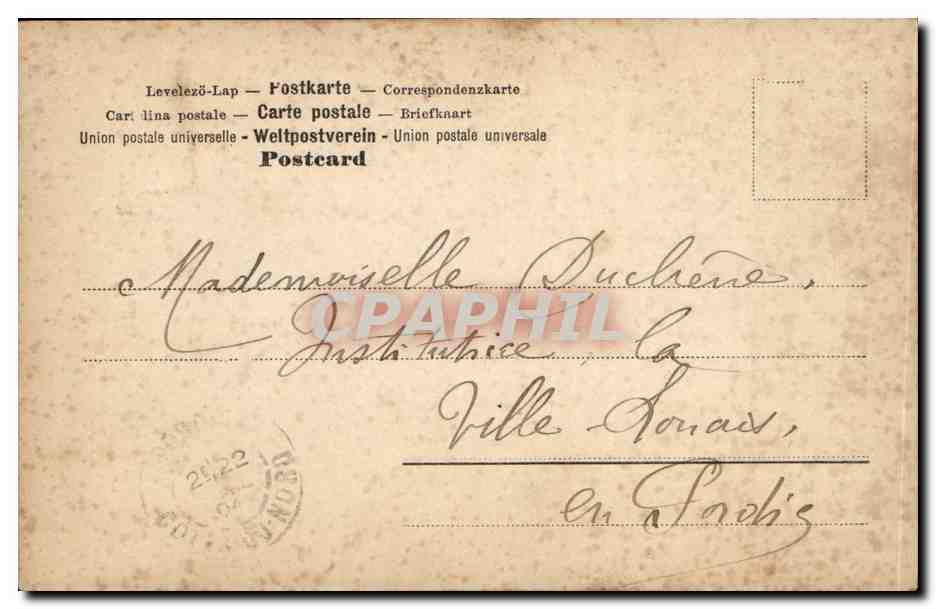 Levelezö-Lap — Postkarte — Correspondenzkarte
Cartolina postale — Carte postale — Briefkaart
Union postale universelle - Weltpostverein - Union postale universale
Postcard
Mademoiselle Duchêne,
CPAPHIL
Institutrice, la
Ville Lonais,
en Pordic